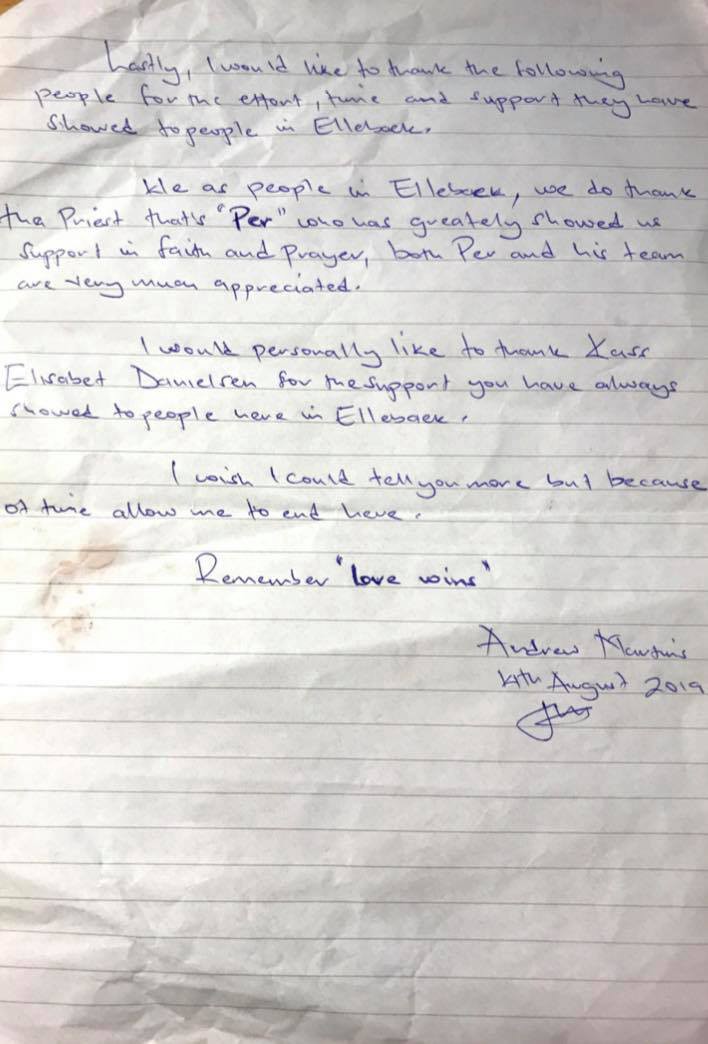 Lastly, I would like to thank the following
people for the effort, time and support they have
showed to people in Ellebaek.
We as people in Ellebaek, we do thank
the Priest that's "Per" who has greately showed us
support in faith and prayer, both Per and his team
are very much appreciated.
I would personally like to thank
Elisabet Danielsen for the support you have always
showed to people here in Ellebaek.
I wish I could tell you more but because
of time allow me to end here.
Remember "love wins"
Andrew Martins
August 2019